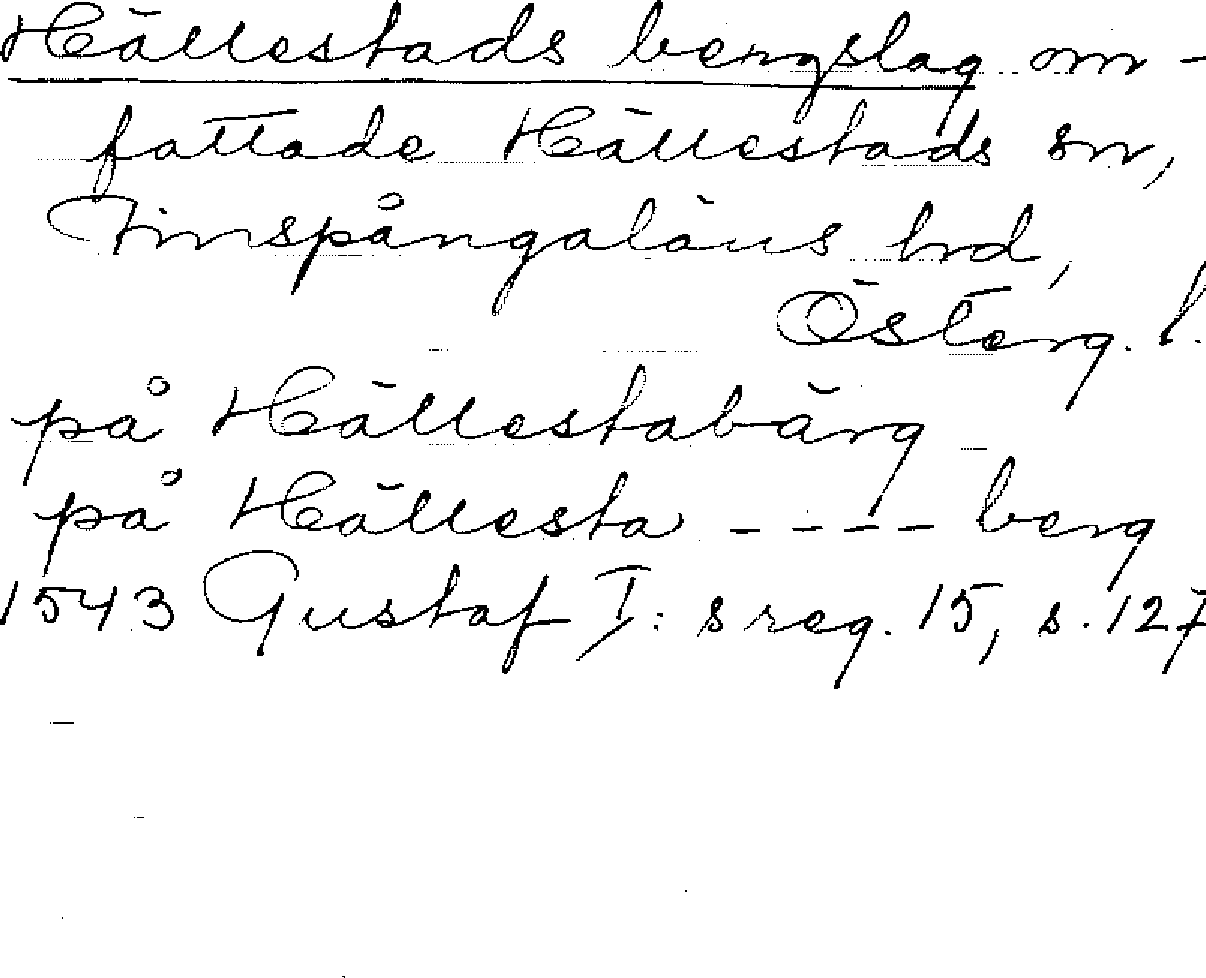 Hällestads bergslag om-
fattade Hällestads sn,
Finspångaläns hd,
Österg. l.
på Hällestabärg
på Hällesta ---- berg
1543 Gustaf I: s reg. 15, s. 127